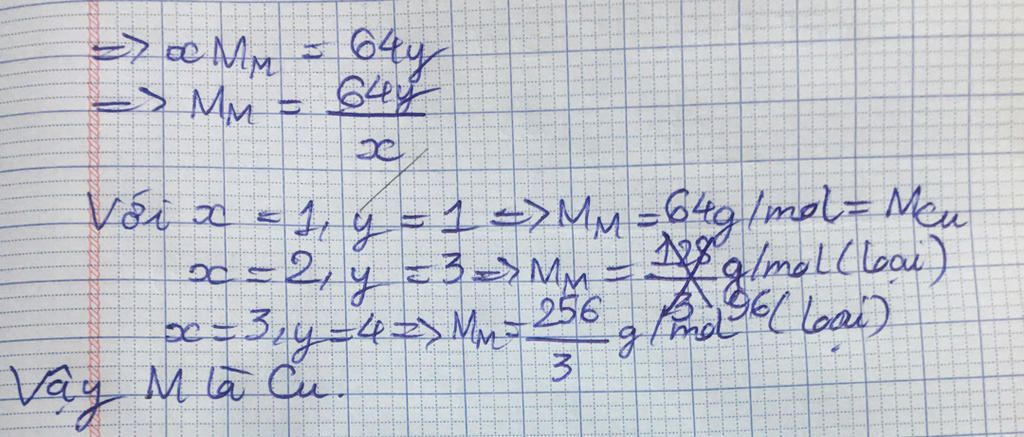 => xMM = 64y
=> MM = 64y/x
Với x = 1, y = 1 => MM = 64g/mol = MCu
x = 2, y = 3 => MM = 128/3 96 g/mol (loại)
x = 3, y = 4 => MM = 256/3 g/mol (loại)
Vậy M là Cu.